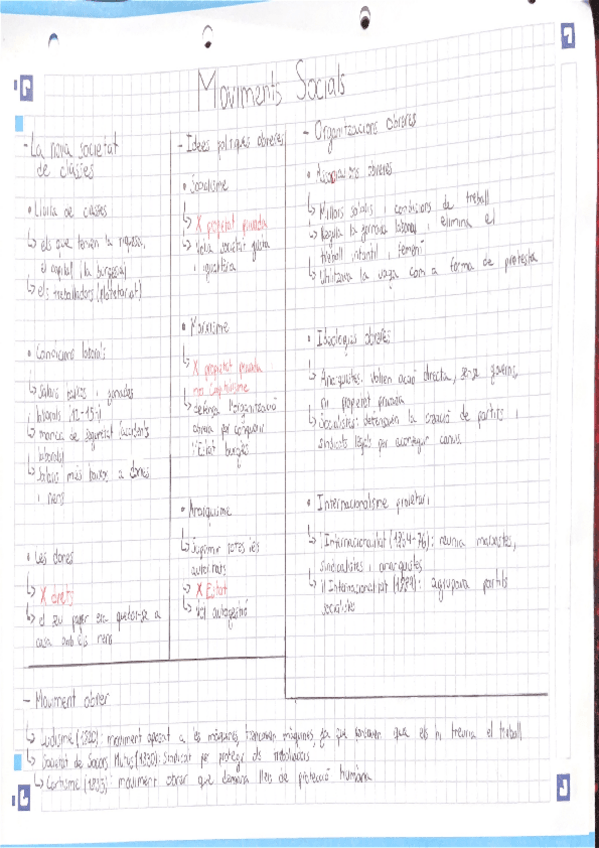 Moviments Socials
- La nova societat
de classes
• Lluita de classes
↳ els que tenien la riquesa,
el capital (la burgesia)
↳ els treballadors (proletariat)
• Condicions laborals
↳ Salaris baixos i jornades
laborals (12-15h)
↳ manca de seguretat (accidents
laborals)
↳ Salaris més baixos a dones
i nens
• Les dones
↳ X drets
↳ el seu paper era quedar-se a
casa amb els nens
- Idees polítiques obreres
• Socialisme
↳ X propietat privada
↳ societat justa
i igualitària
• Marxisme
↳ X propietat privada
↳ defensa l'organització
obrera per conquerir
l'Estat burgès
• Anarquisme
↳ Suprimir totes les
autoritats
↳ X Estat
↳ autogestió
- Organitzacions obreres
• Associacions obreres
↳ Millors salaris i condicions de treball
↳ Regula la jornada laboral i elimina el
treball infantil i femení
↳ utilitzava la vaga com a forma de protesta
• Ideologies obreres
↳ Anarquistes: volien acció directa, sense govern,
ni propietat privada
↳ Socialistes: defensaven la creació de partits i
sindicats legals per aconseguir canvis
• Internacionalisme proletari
↳ I Internacional (1864-76): reunia marxistes,
sindicalistes i anarquistes
↳ II Internacional (1889): agrupava partits
socialistes
- Moviment obrer
↳ Ludisme (1820): moviment oposat a les màquines, trencaven màquines, ja que pensaven que els hi treuria el treball
↳ Societat de Socors Mutus (1820): Sindicat per protegir els treballadors
↳ Cartisme (1835): moviment obrer que demana lleis de protecció humana